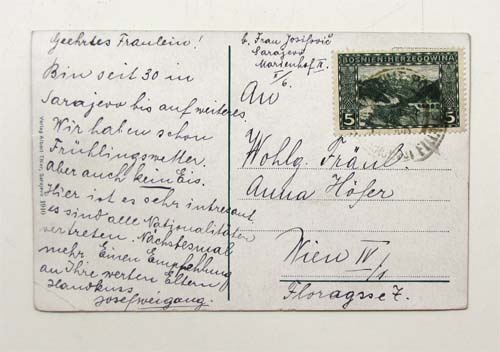 Geehrtes Fräulein!
Bin seit 30 in
Sarajevo bis auf weiteres.
Wir haben schon
Frühlingswetter.
Aber auch kein Eis.
Hier ist es sehr intresant
es sind alle Nationalitäten
vertreten. Nächstesmal
mehr Einen Empfehlung
an Ihre werten Eltern
Handkuss
Josef Weigang.
Verlag Albert Thier, Sarajevo 1910
b. Frau Josifović
Sarajevo
Marienhof II.
An
Wohlg. Fräul.
Anna Höfer
Wien IV/1
Floragsse 7.
BOSNIEN-HERZEGOWINA
5 5